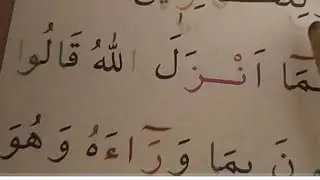 مَآ اَنْزَلَ اللّٰهُ قَالُوا
نَ بِمَا وَرَآءَهٗ وَهُوَ